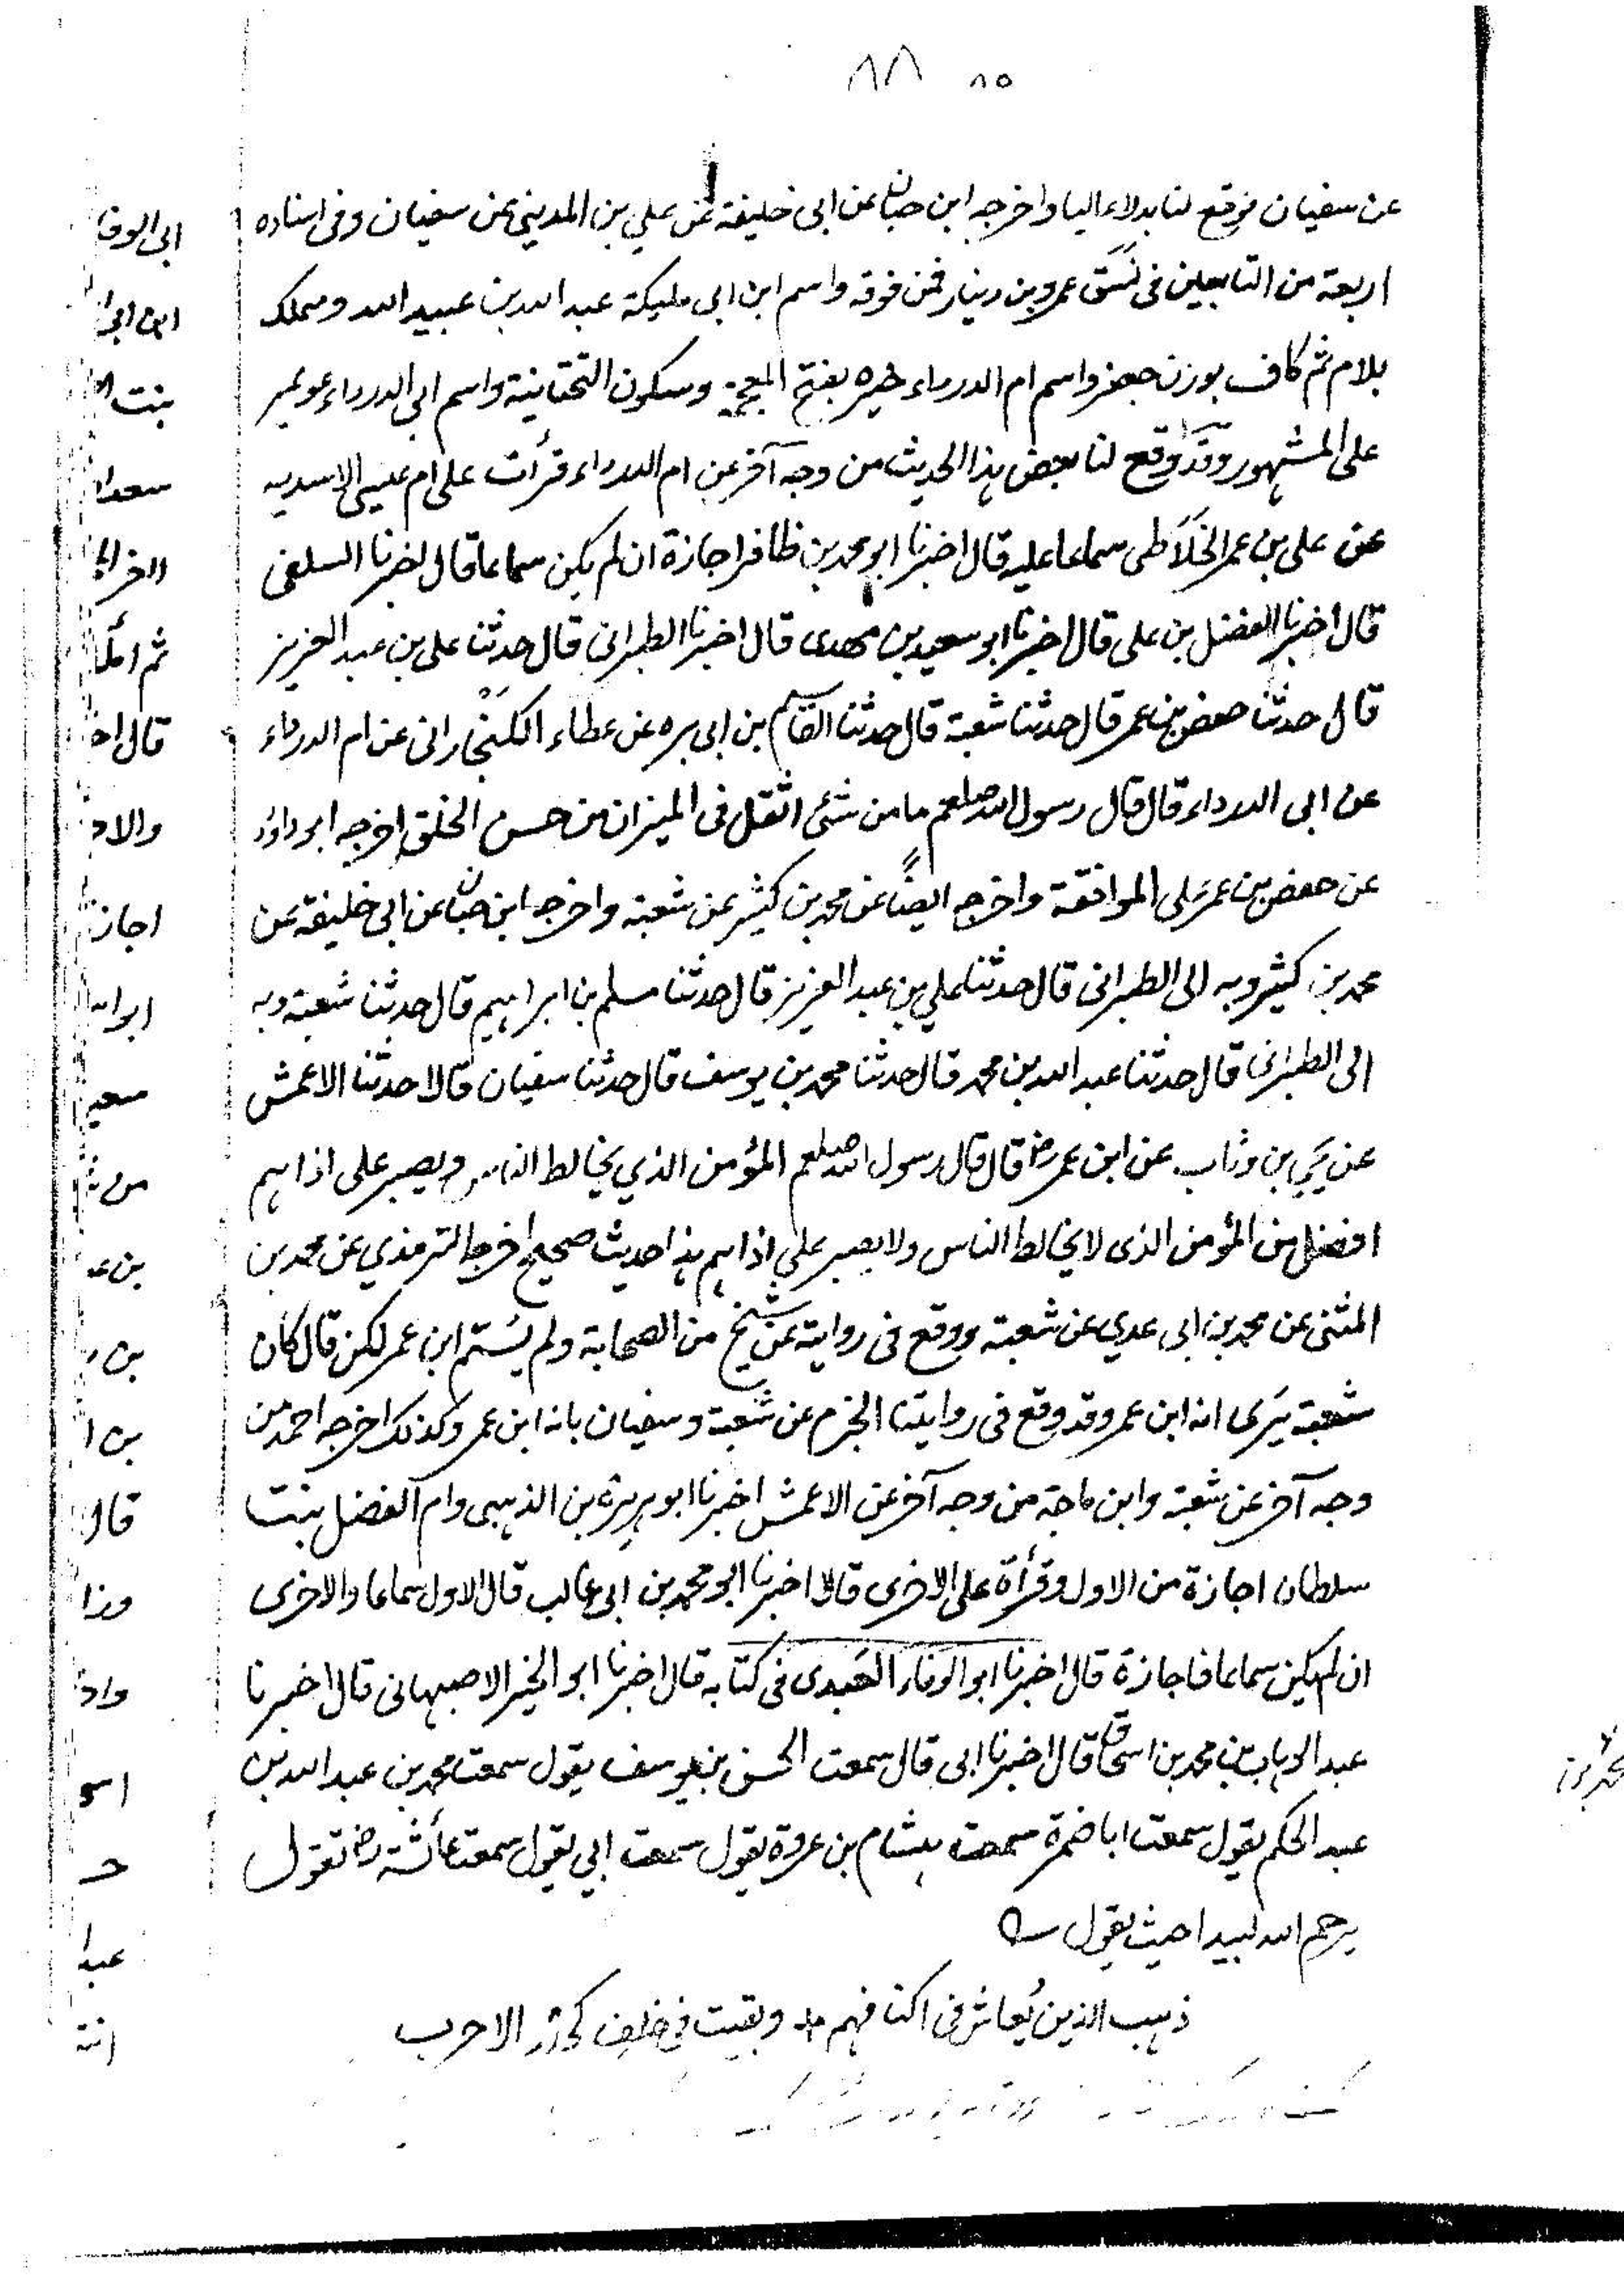 ٨٨ ٨٥
عن سفيان فوقع لنا بدلا عاليا واخرجه ابن حبان عن ابى خليفة عن علي بن المديني عن سفيان وفى اسناده
اربعة من التابعين فى نسق عمرو بن دينار فمن فوقه واسم ابن ابى مليكة عبد الله بن عبيد الله ومملك
بلام ثم كاف بوزن جعفر واسم ام الدرداء خيره بفتح المعجمة وسكون التحتانية واسم ابى الدرداء عويمر
على المشهور وقد وقع لنا بعض هذا الحديث من وجه آخر عن ام الدرداء قرأت على ام عيسى الاسديه
عن على بن عمر الخلاطى سماعا عليه قال اخبرنا ابو محمد بن ظافر اجازة ان لم يكن سماعا قال اخبرنا السلفى
قال اخبرنا الفضل بن على قال اخبرنا ابو سعيد بن مهدى قال اخبرنا الطبرانى قال حدثنا على بن عبد العزيز
قال حدثنا حفص بن عمر قال حدثنا شعبة قال حدثنا القاسم بن ابى بره عن عطاء الكيخارانى عن ام الدرداء
عن ابى الدرداء قال قال رسول الله صلعم ما من شئ اثقل فى الميزان من حسن الخلق اخرجه ابو داؤد
عن حفص بن عمر على الموافقة واخرجه ايضًا عن محمد بن كثير عن شعبة واخرجه ابن حبان عن ابى خليفة عن
محمد بن كثير وبه الى الطبرانى قال حدثنا علي بن عبد العزيز قال حدثنا مسلم بن ابراهيم قال حدثنا شعبة وبه
الى الطبرانى قال حدثنا عبد الله بن محمد قال حدثنا محمد بن يوسف قال حدثنا سفيان قالا حدثنا الاعمش
عن يحيي بن وثاب عن ابن عمر رض قال قال رسول الله صلعم المؤمن الذي يخالط الناس ويصبر على اذاهم
افضل من المؤمن الذى لا يخالط الناس ولا يصبر علي اذاهم هذا حديث صحيح اخرجه الترمذي عن محمد بن
المثنى عن محمد بن ابى عدي عن شعبة ووقع فى رواية عن شيخ من الصحابة ولم يُسَمّ ابن عمر لكن قال كان
شعبة يَرى انه ابن عمر وقد وقع فى روايتنا الجزم عن شعبة وسفيان بانه ابن عمر وكذلك اخرجه احمد من
وجه آخر عن شعبة وابن ماجة من وجه آخر عن الاعمش اخبرنا ابو هريرة بن الذهبى وام الفضل بنت
سلطان اجازة من الاول وقرأة على الاخرى قالا اخبرنا ابو محمد بن ابى غالب قال الاول سماعا والاخرى
ان لم يكن سماعا فاجازة قال اخبرنا ابو الوفاء العبدى فى كتابه قال اخبرنا ابو الخير الاصبهانى قال اخبرنا
عبد الوهاب بن محمد بن اسحاق قال اخبرنا ابى قال سمعت الحسن بن يوسف يقول سمعت محمد بن عبد الله بن
عبد الحكم يقول سمعت ابا ضمرة سمعت هشام بن عروة يقول سمعت ابي يقول سمعت عائشة رض تقول
يرحم الله لبيدا حيث يقول
ذهب الذين يُعاش فى اكنافهم وبقيت فى خلف كجلد الاجرب
ابى الوفا
ابن ابى
بنت
ثم
قال
اجاز
من
بن
بن
بن ا
قال
عبد